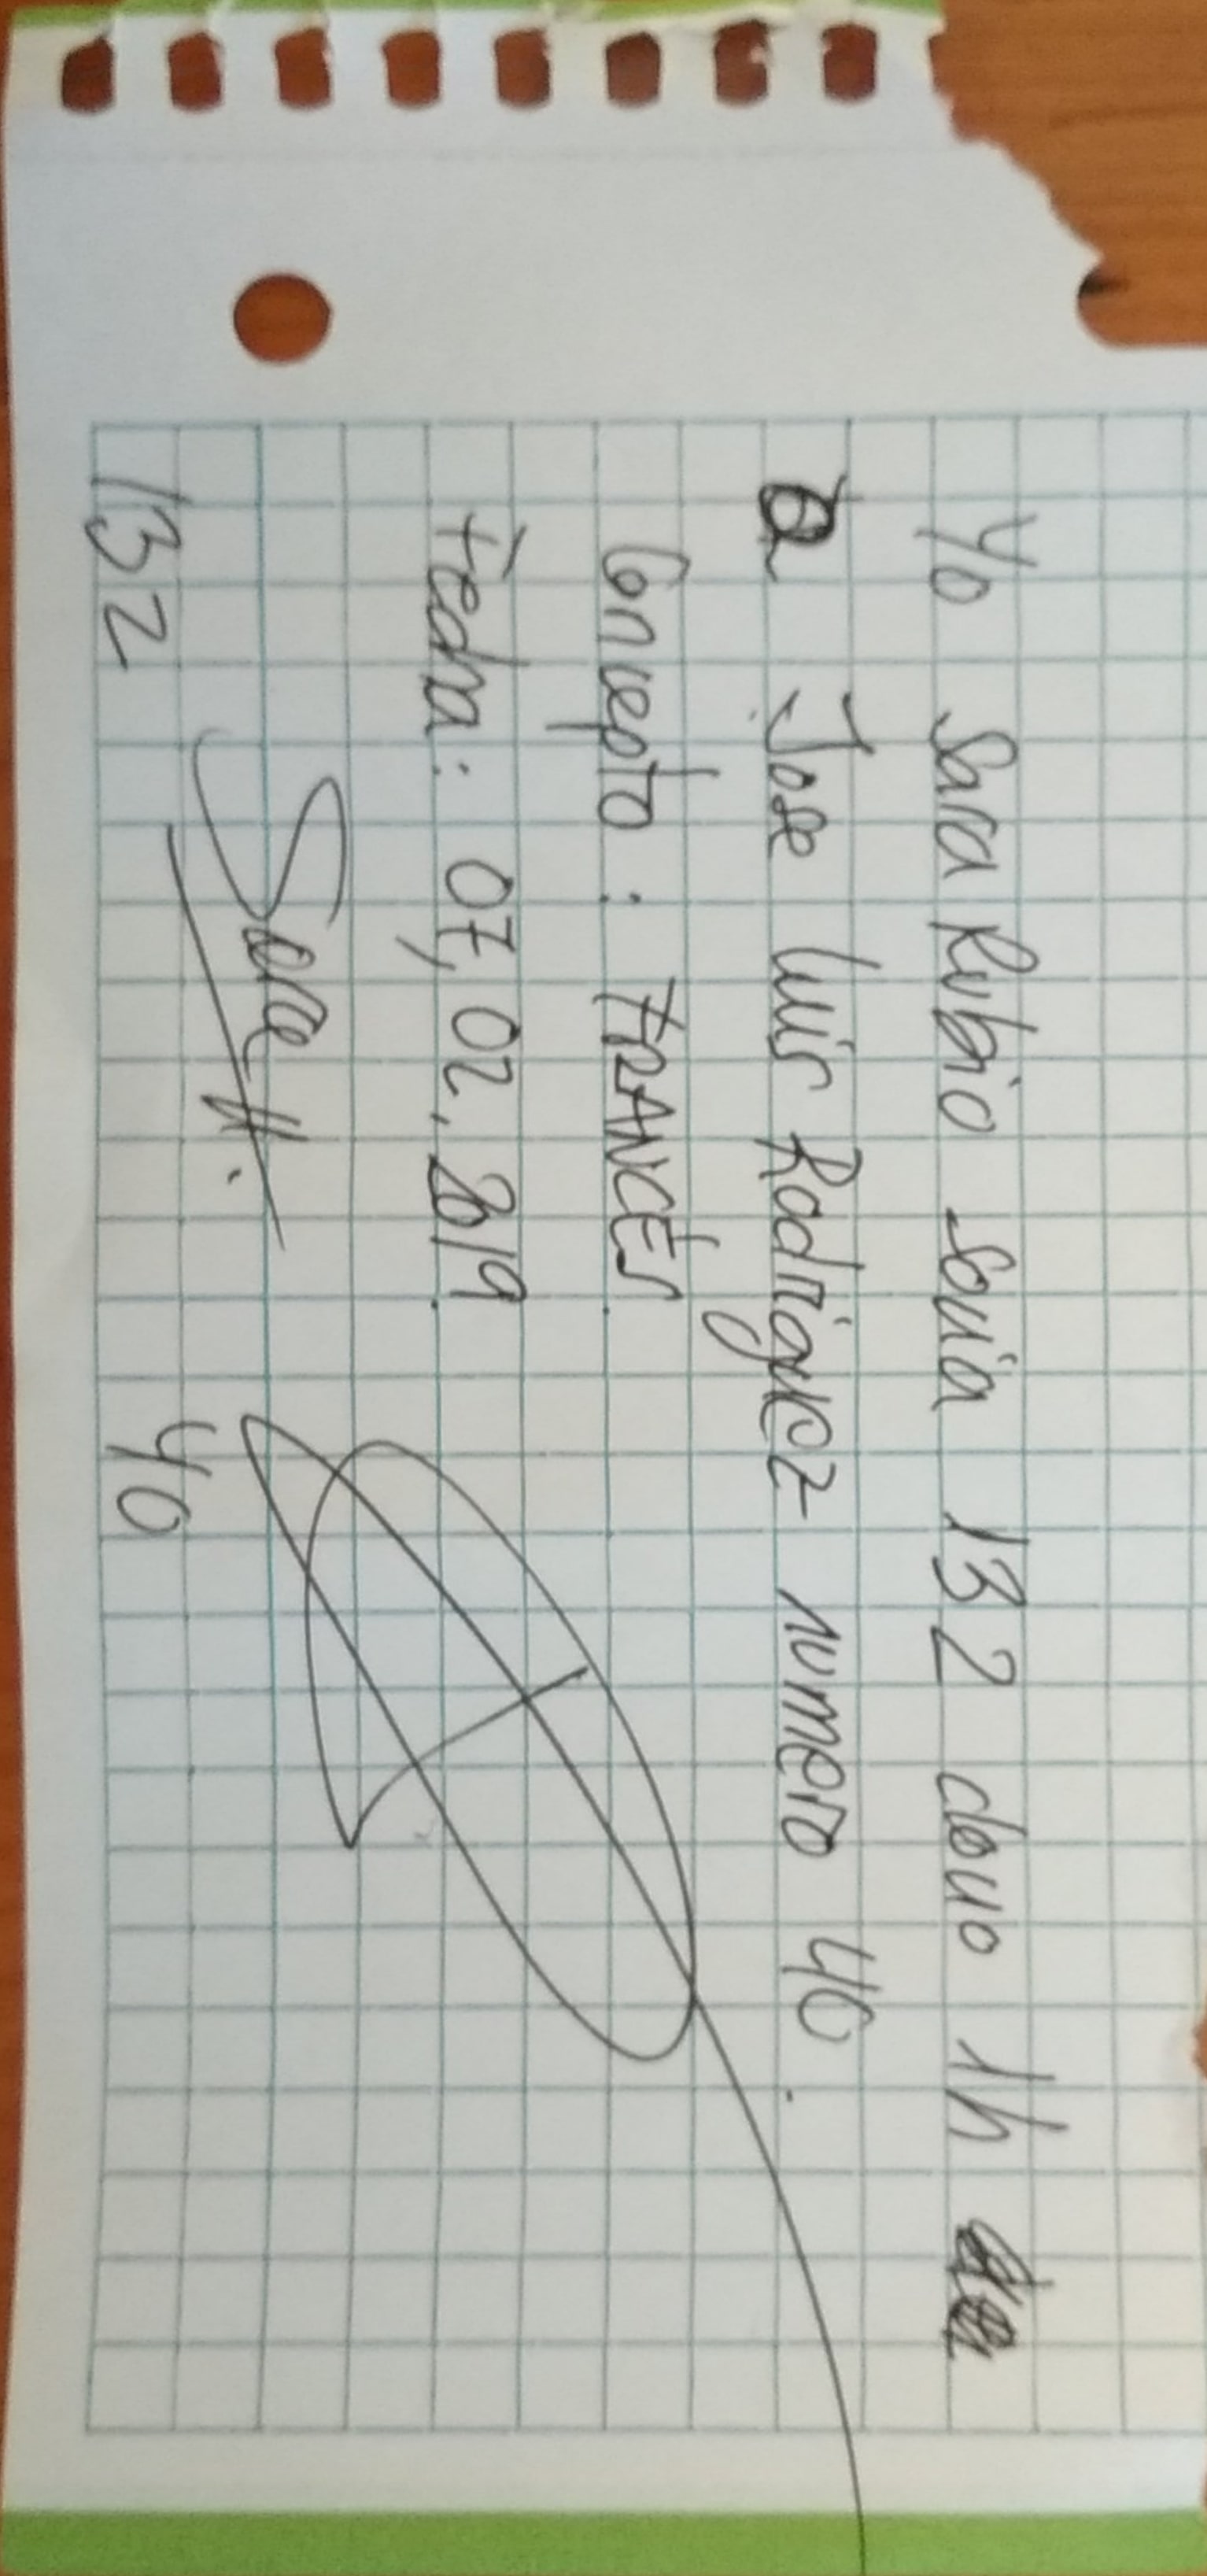 Yo Sara Rubio socia 132 dono 1h
a Jose Luis Rodriguez numero 40.
Concepto: FRANCÉS.
Fecha: 07, 02, 2019.
Sara
132 40